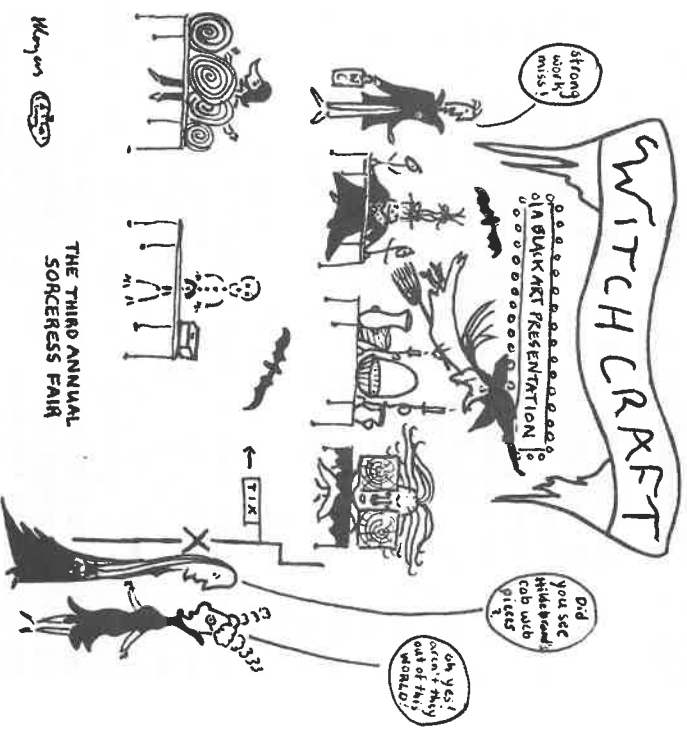 WITCHCRAFT
A BLACK ART PRESENTATION
strong
work
miss!
Did
you see
Hildebrand's
cob web
pieces
?
oh yes!
aren't they
out of this
WORLD!
TIX
THE THIRD ANNUAL
SORCERESS FAIR